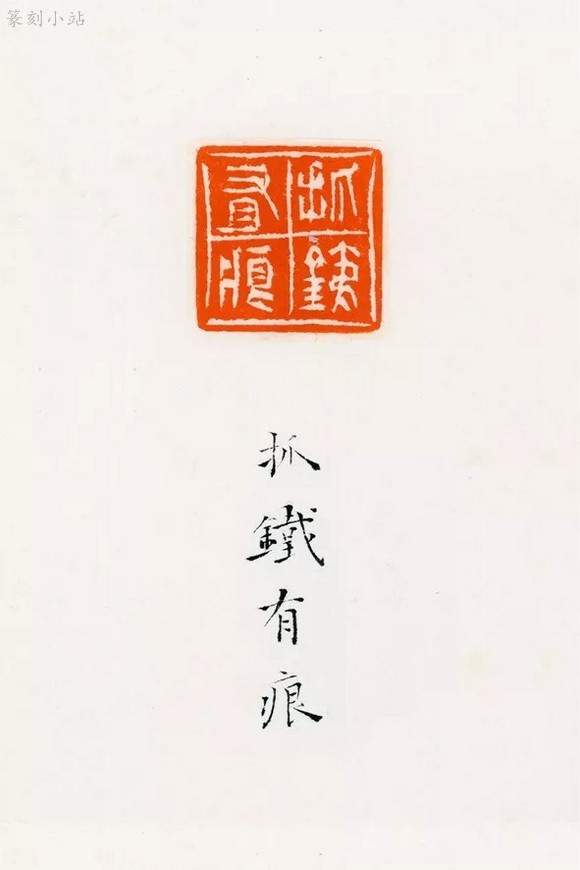 篆刻小站
抓鐵有痕
抓鐵有痕